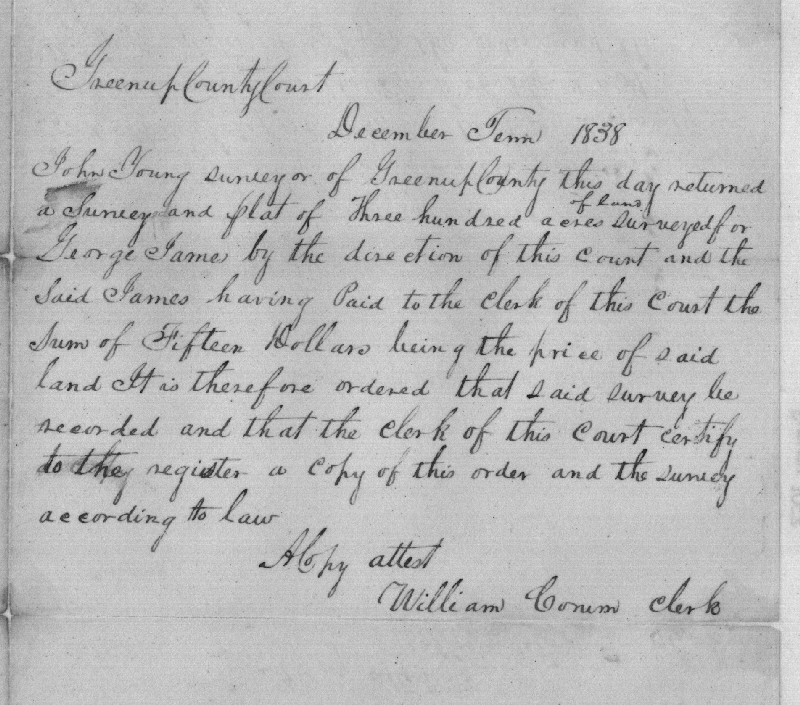 Greenup County Court
December Term 1838
John Young surveyor of Greenup County this day returned
a Survey and plat of Three hundred acres of land surveyed for
George James by the direction of this Court and the
Said James having Paid to the Clerk of this Court the
Sum of Fifteen Dollars being the price of said
land It is therefore ordered that said survey be
recorded and that the Clerk of this Court certify
to the register a Copy of this order and the survey
according to law
A Copy attest
William Corum Clerk